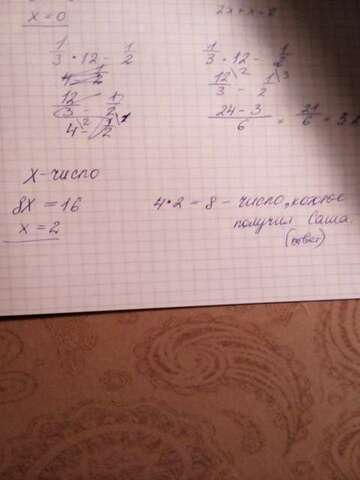 x = 0
2x + x =
1/3 · 12 - 1/2
12/3 - 1/2
4 - 1/2
1/3 · 12 - 1/2
12/3 - 1/2
(24 - 3)/6 = 21/6 = 3
X - число
8X = 16
x = 2
4 * 2 = 8 - число, которое
получил Саша
(ответ)